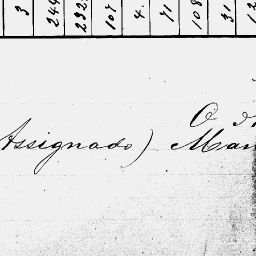 3 244 232 107 4. 71 108 31 12
O
Assignado) Man